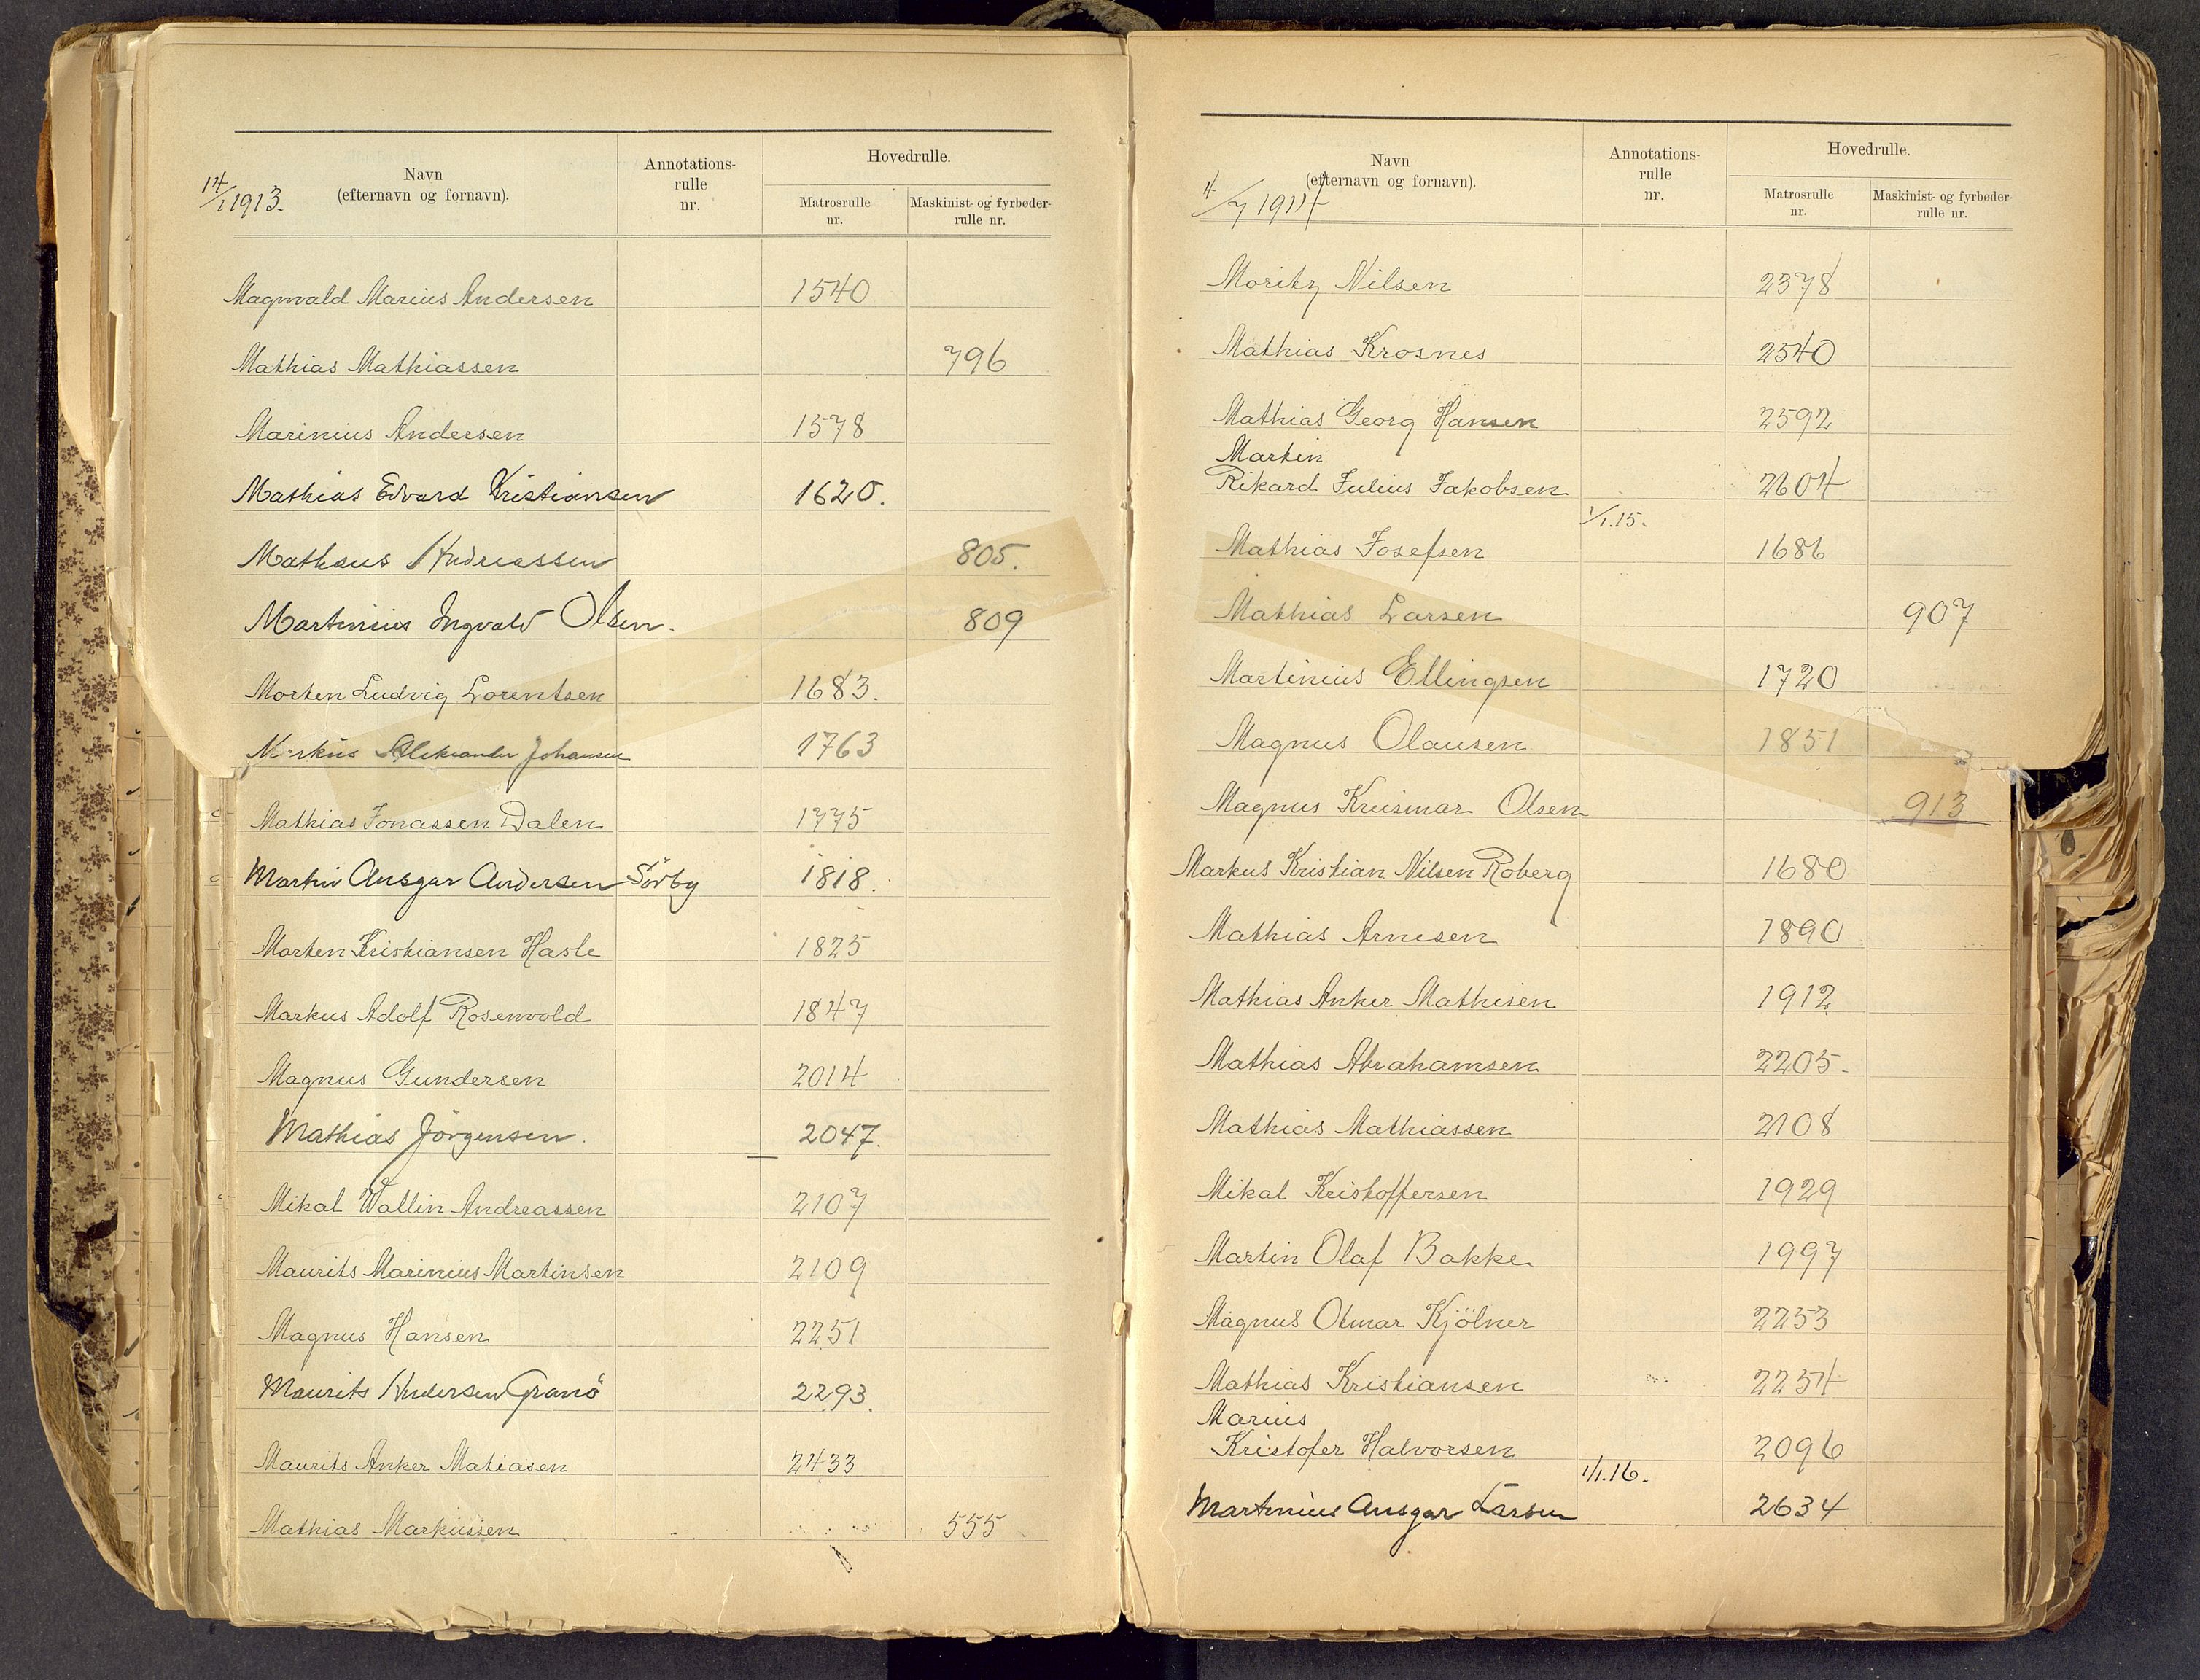 14/1 1913.
Navn
(efternavn og fornavn).
Annotations-
rulle
nr.
Hovedrulle.
Matrosrulle
nr.
Maskinist- og fyrbøder-
rulle nr.
Magnvald Marius Andersen 1540
Mathias Mathiassen 796
Marinius Andersen 1578
Mathias Edvard Kristiansen 1620.
Mathæus Andreassen 805.
Martinius Ingvald Olsen. 809
Morten Ludvig Lorentsen 1683.
Markus Aleksander Johansen 1763
Mathias Jonassen Dalen 1775
Martin Ansgar Andersen Sörby 1818.
Morten Kristiansen Hasle 1825
Markus Adolf Rosenvold 1847
Magnus Gundersen 2014
Mathias Jörgensen. 2047.
Mikal Wallin Andreassen 2107
Maurits Marinius Martinsen 2109
Magnus Hansen 2251
Maurits Andersen Granö 2293.
Maurits Anker Matiasen 2433
Mathias Markussen 555
4/7 1914
Navn
(efternavn og fornavn).
Annotations-
rulle
nr.
Hovedrulle.
Matrosrulle
nr.
Maskinist- og fyrbøder-
rulle nr.
Moritz Nilsen 2378
Mathias Krosnes 2540
Mathias Georg Hansen 2592
Martin
Rikard Julius Jakobsen 2604
1/1.15.
Mathias Josefsen 1686
Mathias Larsen 907
Martinius Ellingsen 1720
Magnus Olausen 1851
Magnus Kruismar Olsen 913
Markus Kristian Nilsen Roberg 1680
Mathias Arnesen 1890
Mathias Anker Mathisen 1912
Mathias Abrahamsen 2205.
Mathias Mathiassen 2108
Mikal Kristoffersen 1929
Martin Olaf Bakke 1997
Magnus Otmar Kjölner 2253
Mathias Kristiansen 2254
Marius
Kristofer Halvorsen 2096
1/1.16.
Martinius Ansgar Larsen 2634